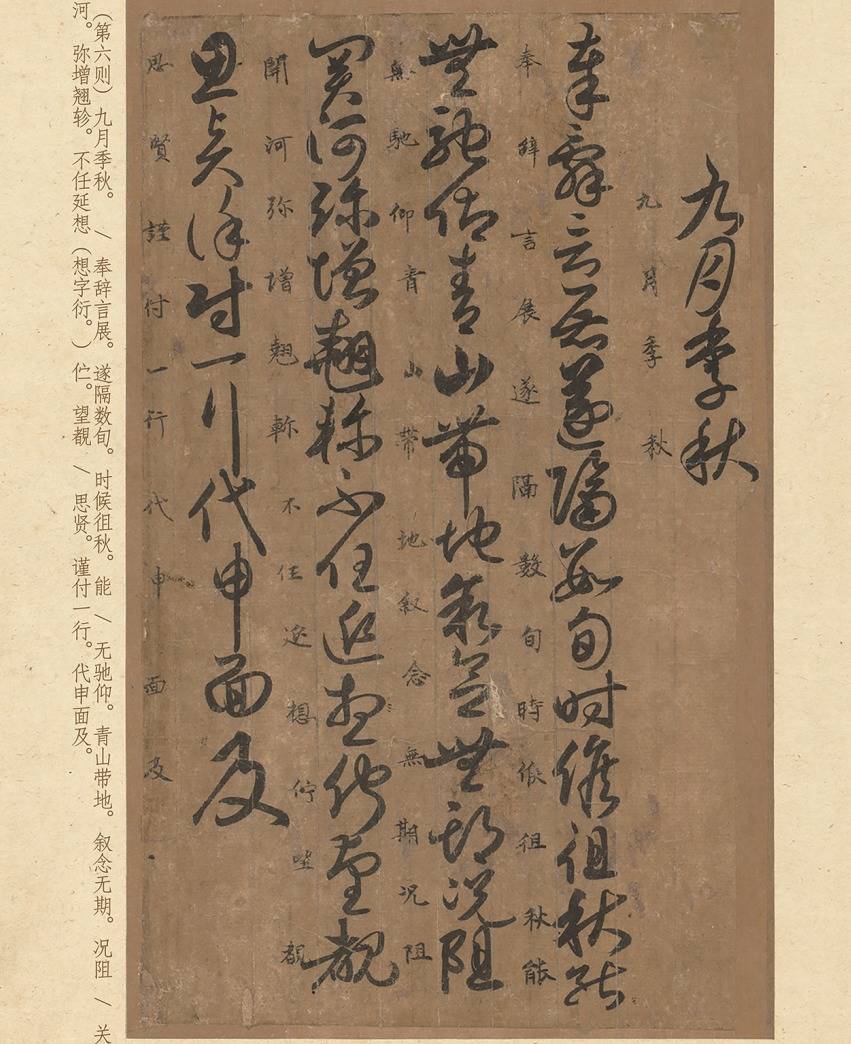 九月季秋
九月季秋
奉辞言展遂隔数旬时候徂秋能
奉辞言展遂隔數旬時候徂秋能
無馳仰青山帶地叙念無期况阻
無馳仰青山帶地叙念無期况阻
關河弥增翹軫不任延想佇望覩
開河弥增翹軫不任延想佇望覩
思賢謹付一行代申面及
思賢謹付一行代申面及
（第六则）九月季秋。 / 奉辞言展。遂隔数旬。时候徂秋。能 / 无驰仰。青山带地。叙念无期。况阻 / 关
河。弥增翘轸。不任延想（想字衍。）伫。望覩 / 思贤。谨付一行。代申面及。